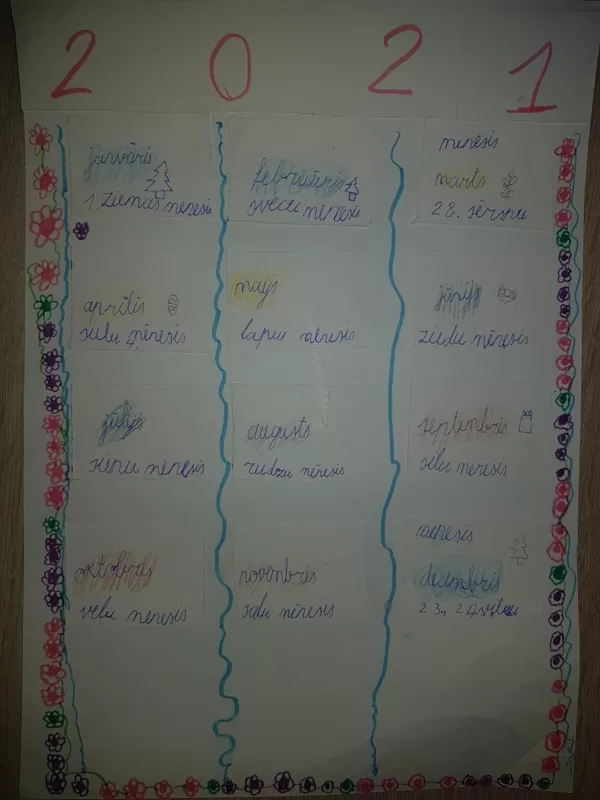 2 0 2 1
janvāris
1. Ziemas mēnesis
februāris
sveču mēnesis
mēnesis
marts
28. sērsnu
aprīlis
sulu mēnesis
maijs
lapu mēnesis
jūnijs
ziedu mēnesis
jūlijs
sienu mēnesis
augusts
rudzu mēnesis
septembris
silu mēnesis
oktobris
velu mēnesis
novembris
salu mēnesis
mēnesis
decembris
23., 24